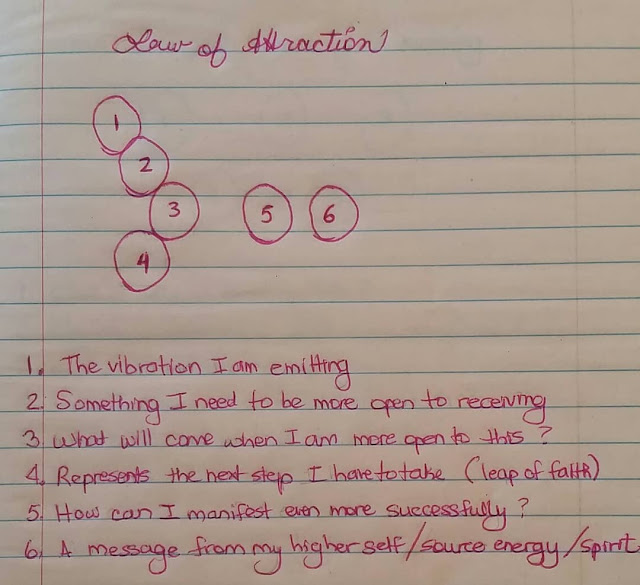 Law of Attraction
1
2
3 5 6
4
1. The vibration I am emitting
2. Something I need to be more open to receiving
3. What will come when I am more open to this?
4. Represents the next step I have to take (leap of faith)
5. How can I manifest even more successfully?
6. A message from my higher self/source energy/spirit